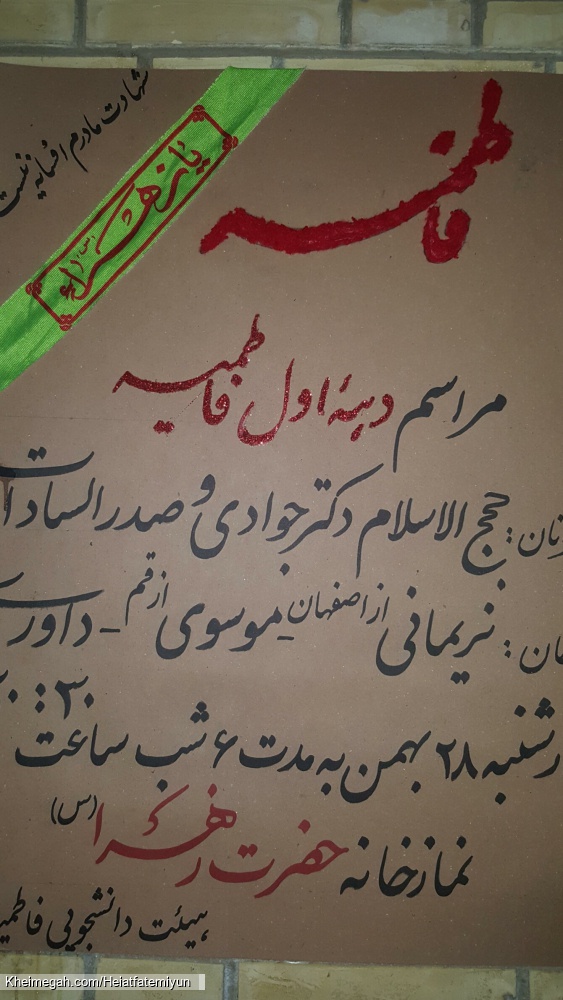 شهادت مادرم افسانه نیست
یا زهراء (س)
فاطمیه
مراسم دههٔ اول فاطمیه
حجج الاسلام دکتر جوادی و صدرالسادات
نریمانی از اصفهان - موسوی از قم - داور
شنبه ۲۸ بهمن به مدت ۶ شب ساعت ۳۰ :
نمازخانه حضرت زهرا (س)
هیئت دانشجویی فاطمی
Kheimegah.com/Heiatfatemiyun